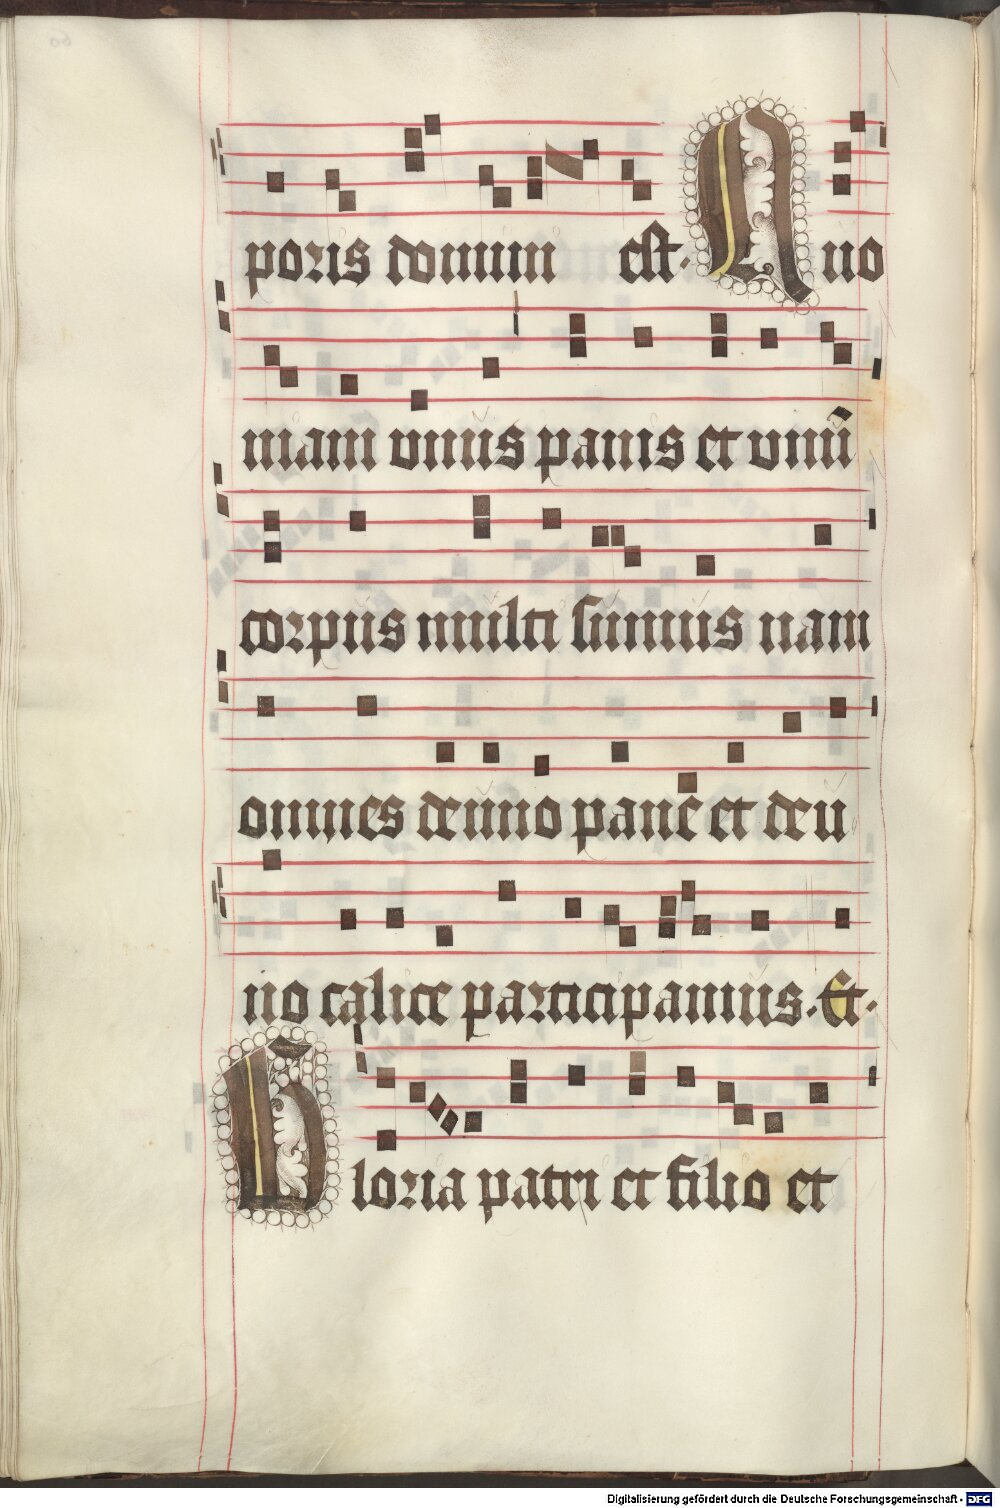 poris domini est. Quo
niam vnus panis et vnū
corpus multi sumus nam
omnes de uno panē et de u
no calice participamus. Et.
Gloria patri et filio et
Digitalisierung gefördert durch die Deutsche Forschungsgemeinschaft - DFG